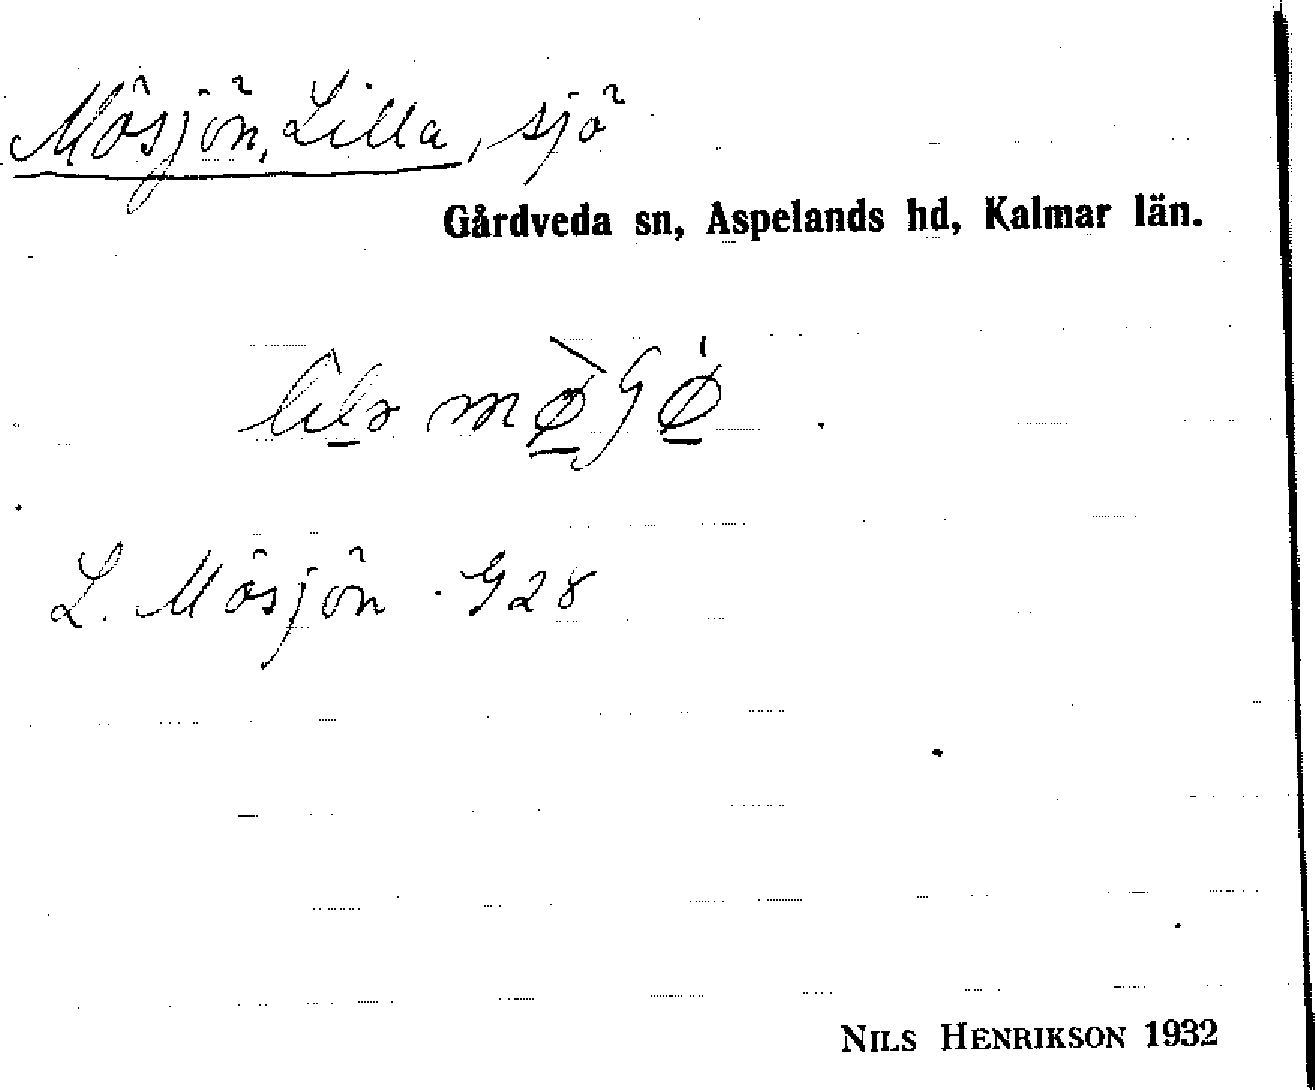 Mösjön, Lilla, sjö
Gårdveda sn, Aspelands hd, Kalmar län.
L. Mösjön G28
NILS HENRIKSON 1932